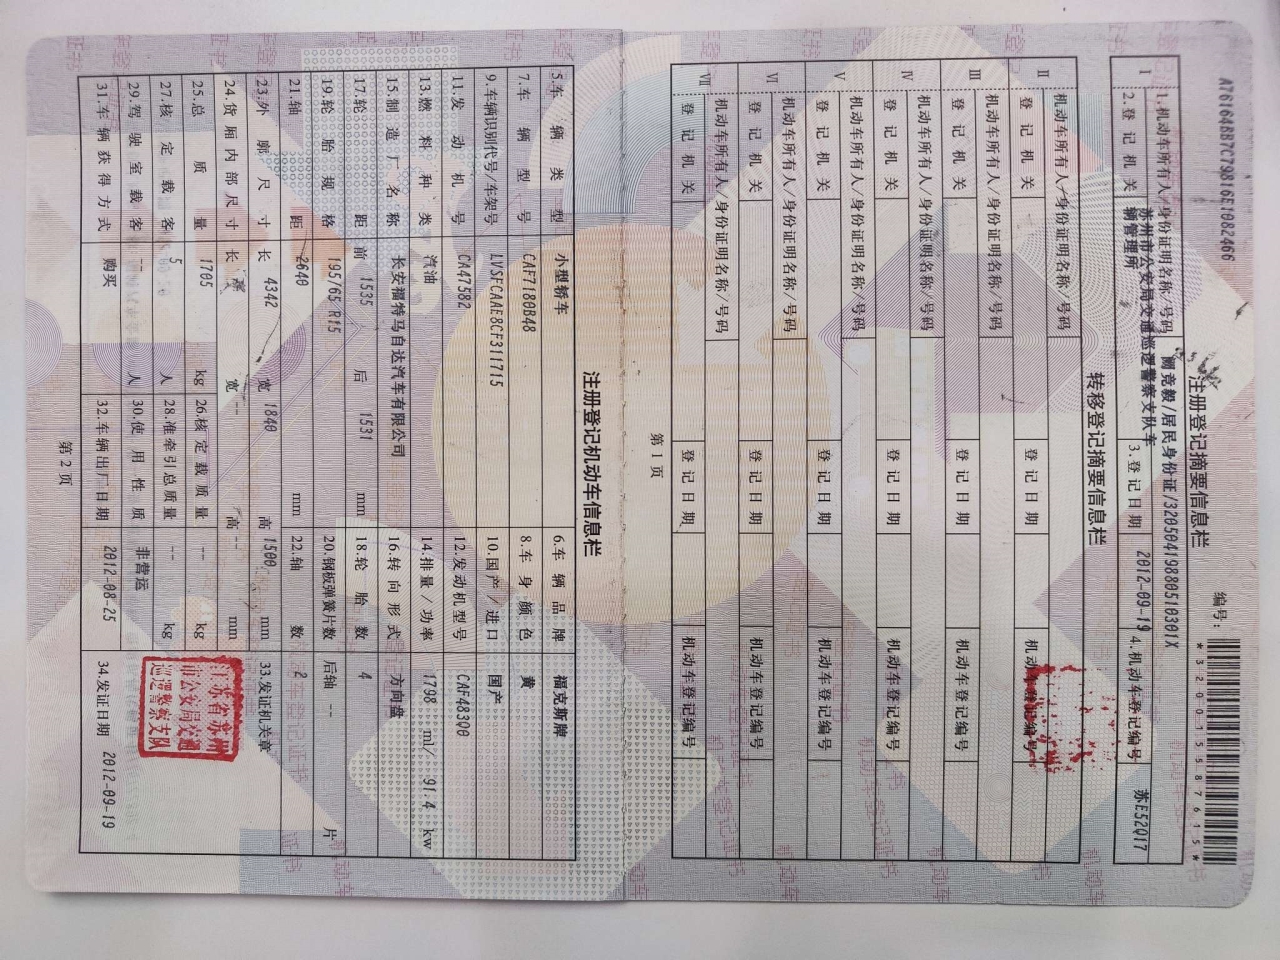 A761648B7C79B16E1082466
编号：
*320015587615*
注册登记摘要信息栏
I
1.机动车所有人/身份证明名称/号码 阚竞毅/居民身份证/32050419880510301X
2.登记机关 苏州市公安局交通巡逻警察支队车辆管理所 3.登记日期 2012-09-19 4.机动车登记编号 苏E52Q17
转移登记摘要信息栏
II 机动车所有人/身份证明名称/号码
登记机关 登记日期 机动车登记编号
III 机动车所有人/身份证明名称/号码
登记机关 登记日期 机动车登记编号
IV 机动车所有人/身份证明名称/号码
登记机关 登记日期 机动车登记编号
V 机动车所有人/身份证明名称/号码
登记机关 登记日期 机动车登记编号
VI 机动车所有人/身份证明名称/号码
登记机关 登记日期 机动车登记编号
VII 机动车所有人/身份证明名称/号码
登记机关 登记日期 机动车登记编号
第 1 页
注册登记机动车信息栏
5.车辆类型 小型轿车 6.车辆品牌 福克斯牌
7.车辆型号 CAF7180B48 8.车身颜色 黄
9.车辆识别代号/车架号 LVSFCAAE8CF311715 10.国产/进口 国产
11.发动机号 CA47582 12.发动机型号 CAF483Q0
13.燃料种类 汽油 14.排量/功率 1798 ml/ 91.4 kw
15.制造厂名称 长安福特马自达汽车有限公司 16.转向形式 方向盘
17.轮距 前 1535 后 1531 mm 18.轮胎数 4
19.轮胎规格 195/65 R15 20.钢板弹簧片数 后轴 -- 片
21.轴距 2640 mm 22.轴数 2
23.外廓尺寸 长 4342 宽 1840 高 1500 mm 33.发证机关章
24.货厢内部尺寸 长 宽 -- 高 -- mm
25.总质量 1705 kg 26.核定载质量 -- kg
27.核定载客 5 人 28.准牵引总质量 -- kg
29.驾驶室载客 -- 人 30.使用性质 非营运
31.车辆获得方式 购买 32.车辆出厂日期 2012-08-25 34.发证日期 2012-09-19
江苏省苏州
市公安局交通
巡逻警察支队
第 2 页